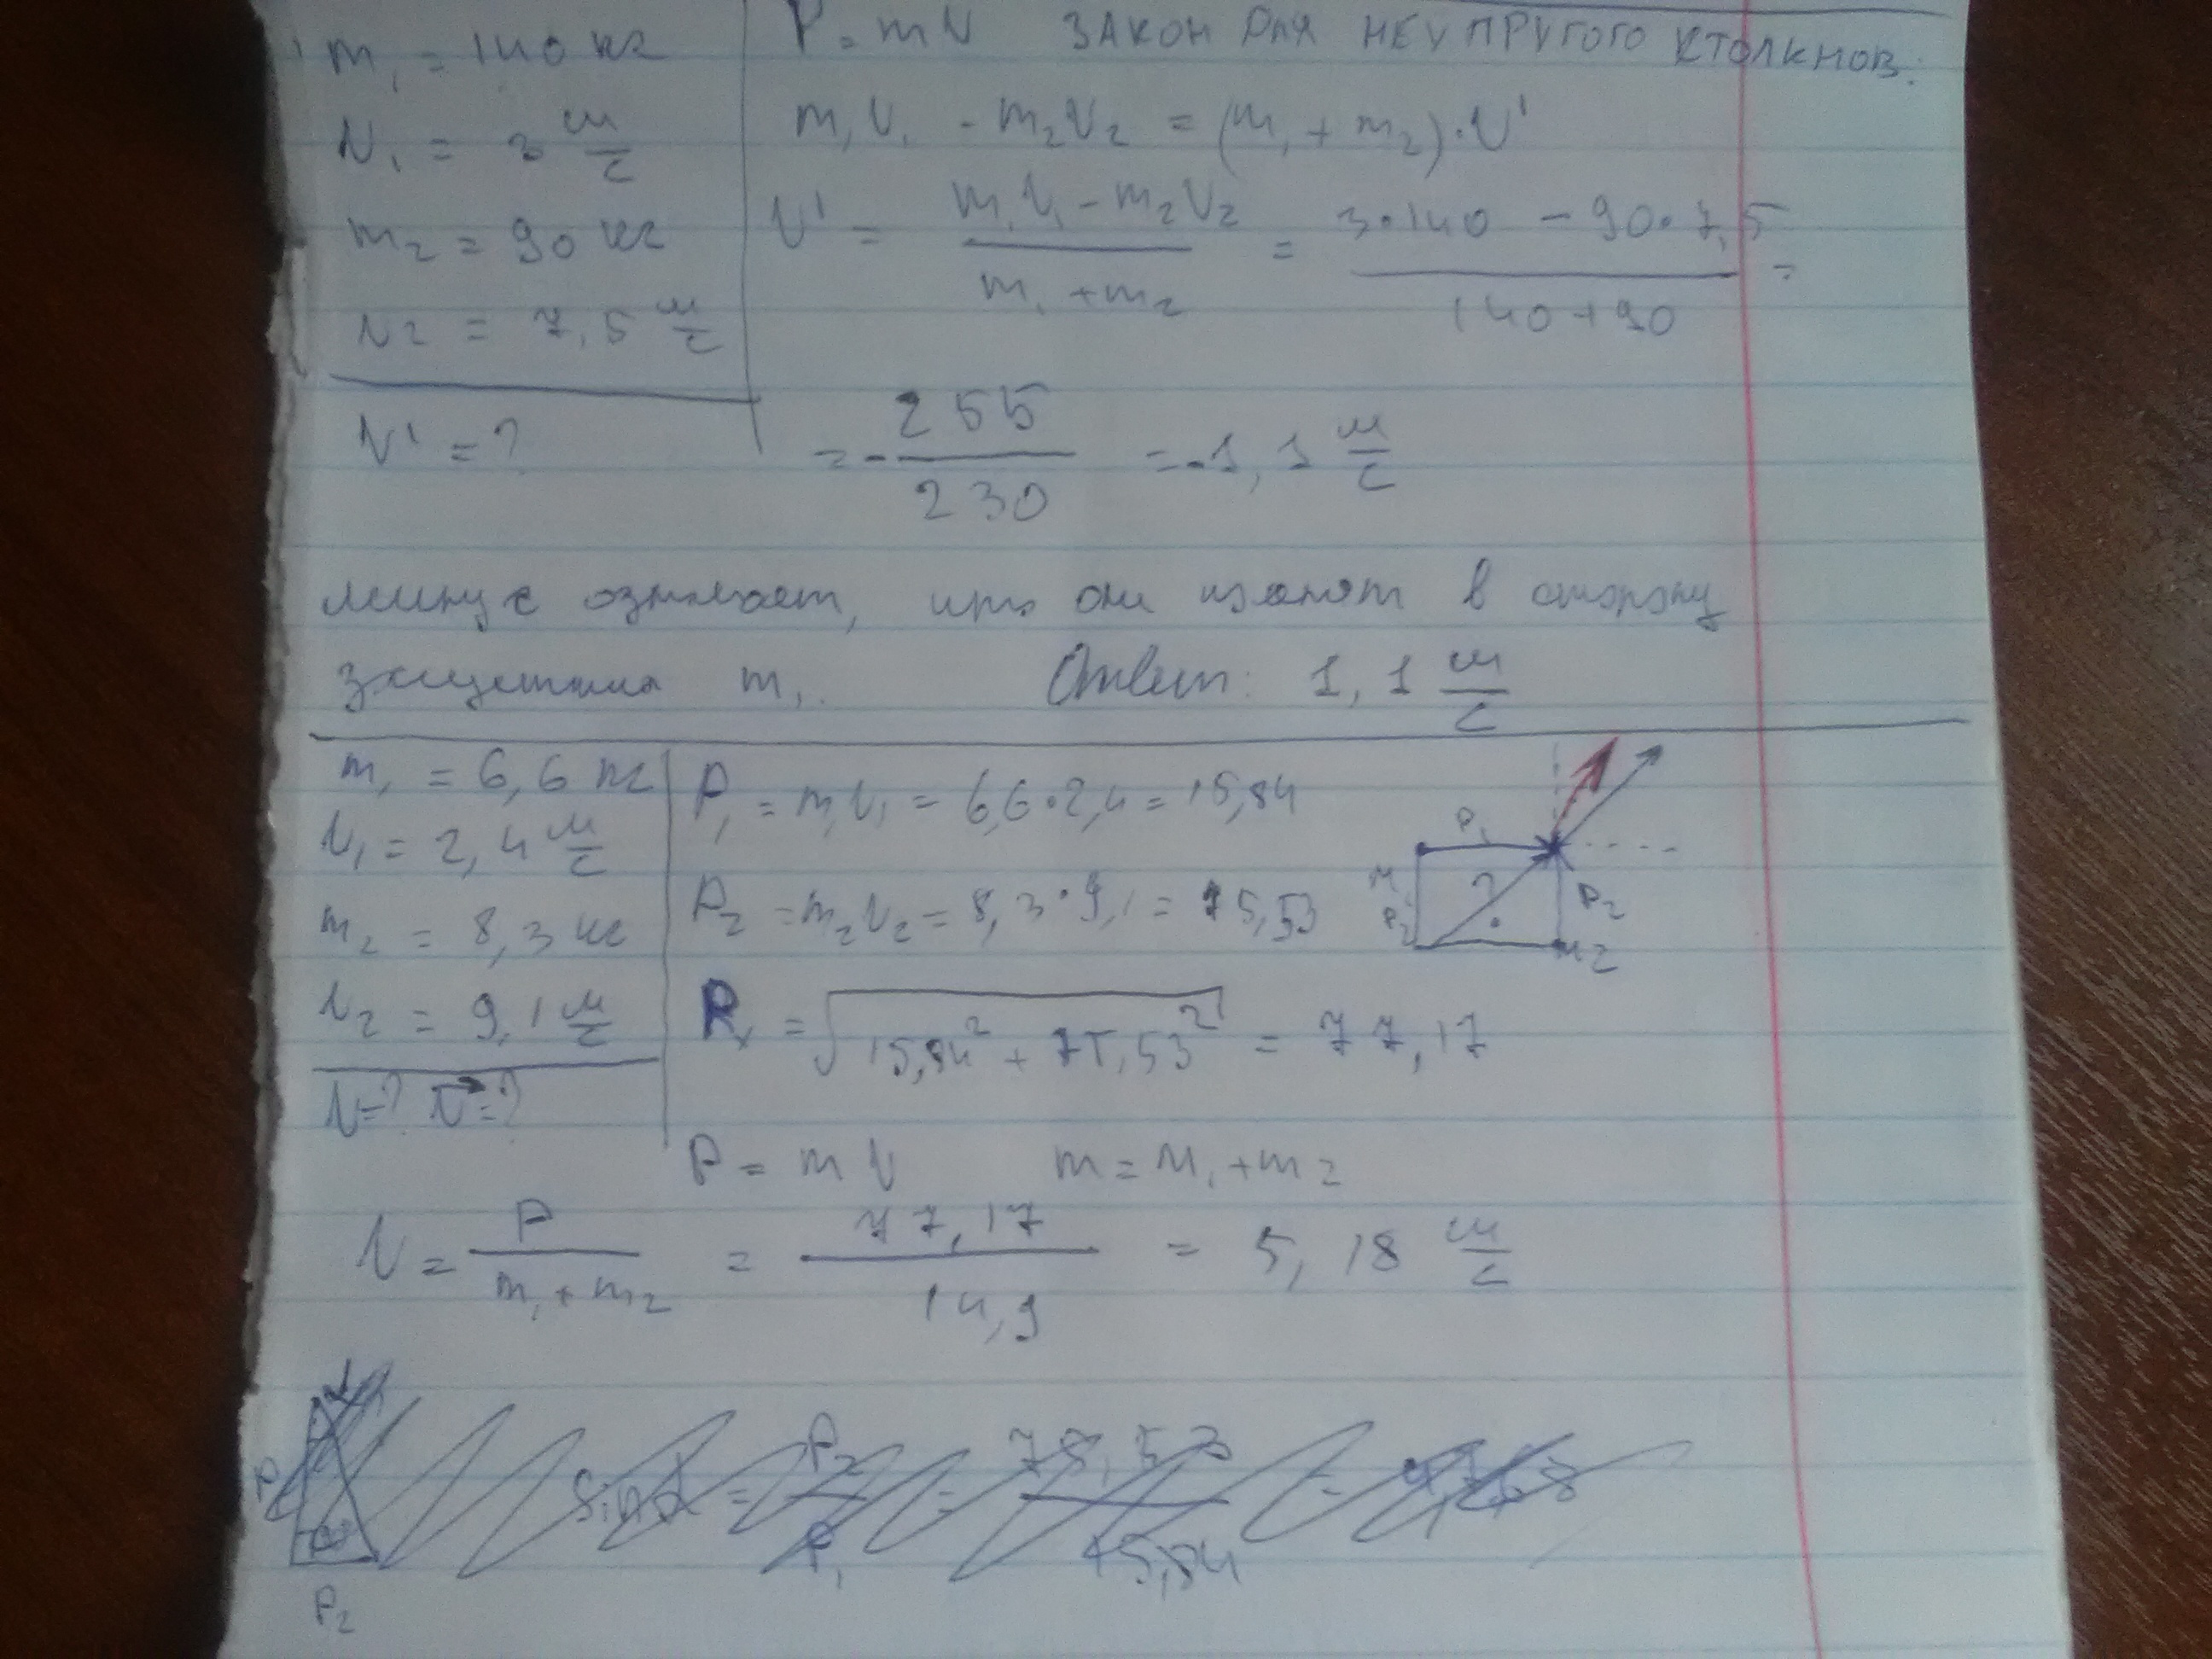 m₁ = 140 кг
V₁ = 3 м/с
m₂ = 90 кг
V₂ = 7,5 м/с
V' = ?
P = mV ЗАКОН ДЛЯ НЕУПРУГОГО СТОЛКНОВ.:
m₁V₁ - m₂V₂ = (m₁ + m₂)·V'
V' = (m₁V₁ - m₂V₂)/(m₁ + m₂) = (3·140 - 90·7,5)/(140+90) =
= -255/230 = -1,1 м/с
минус означает, что они в сторону
защитника m₁. Ответ: 1,1 м/с
m₁ = 6,6 кг
V₁ = 2,4 м/с
m₂ = 8,3 кг
V₂ = 9,1 м/с
V=? V⃗=?
P₁ = m₁V₁ = 6,6·2,4 = 15,84
P₂ = m₂V₂ = 8,3·9,1 = 75,53
= √(15,84² + 75,53²) = 77,17
P₁
?
P₂
P₂
m₂
P = mV m = m₁ + m₂
V = P/(m₁ + m₂) = 77,17/14,9 = 5,18 м/с
sin α = P₂/P₁ = 75,53/15,84 =
P₂